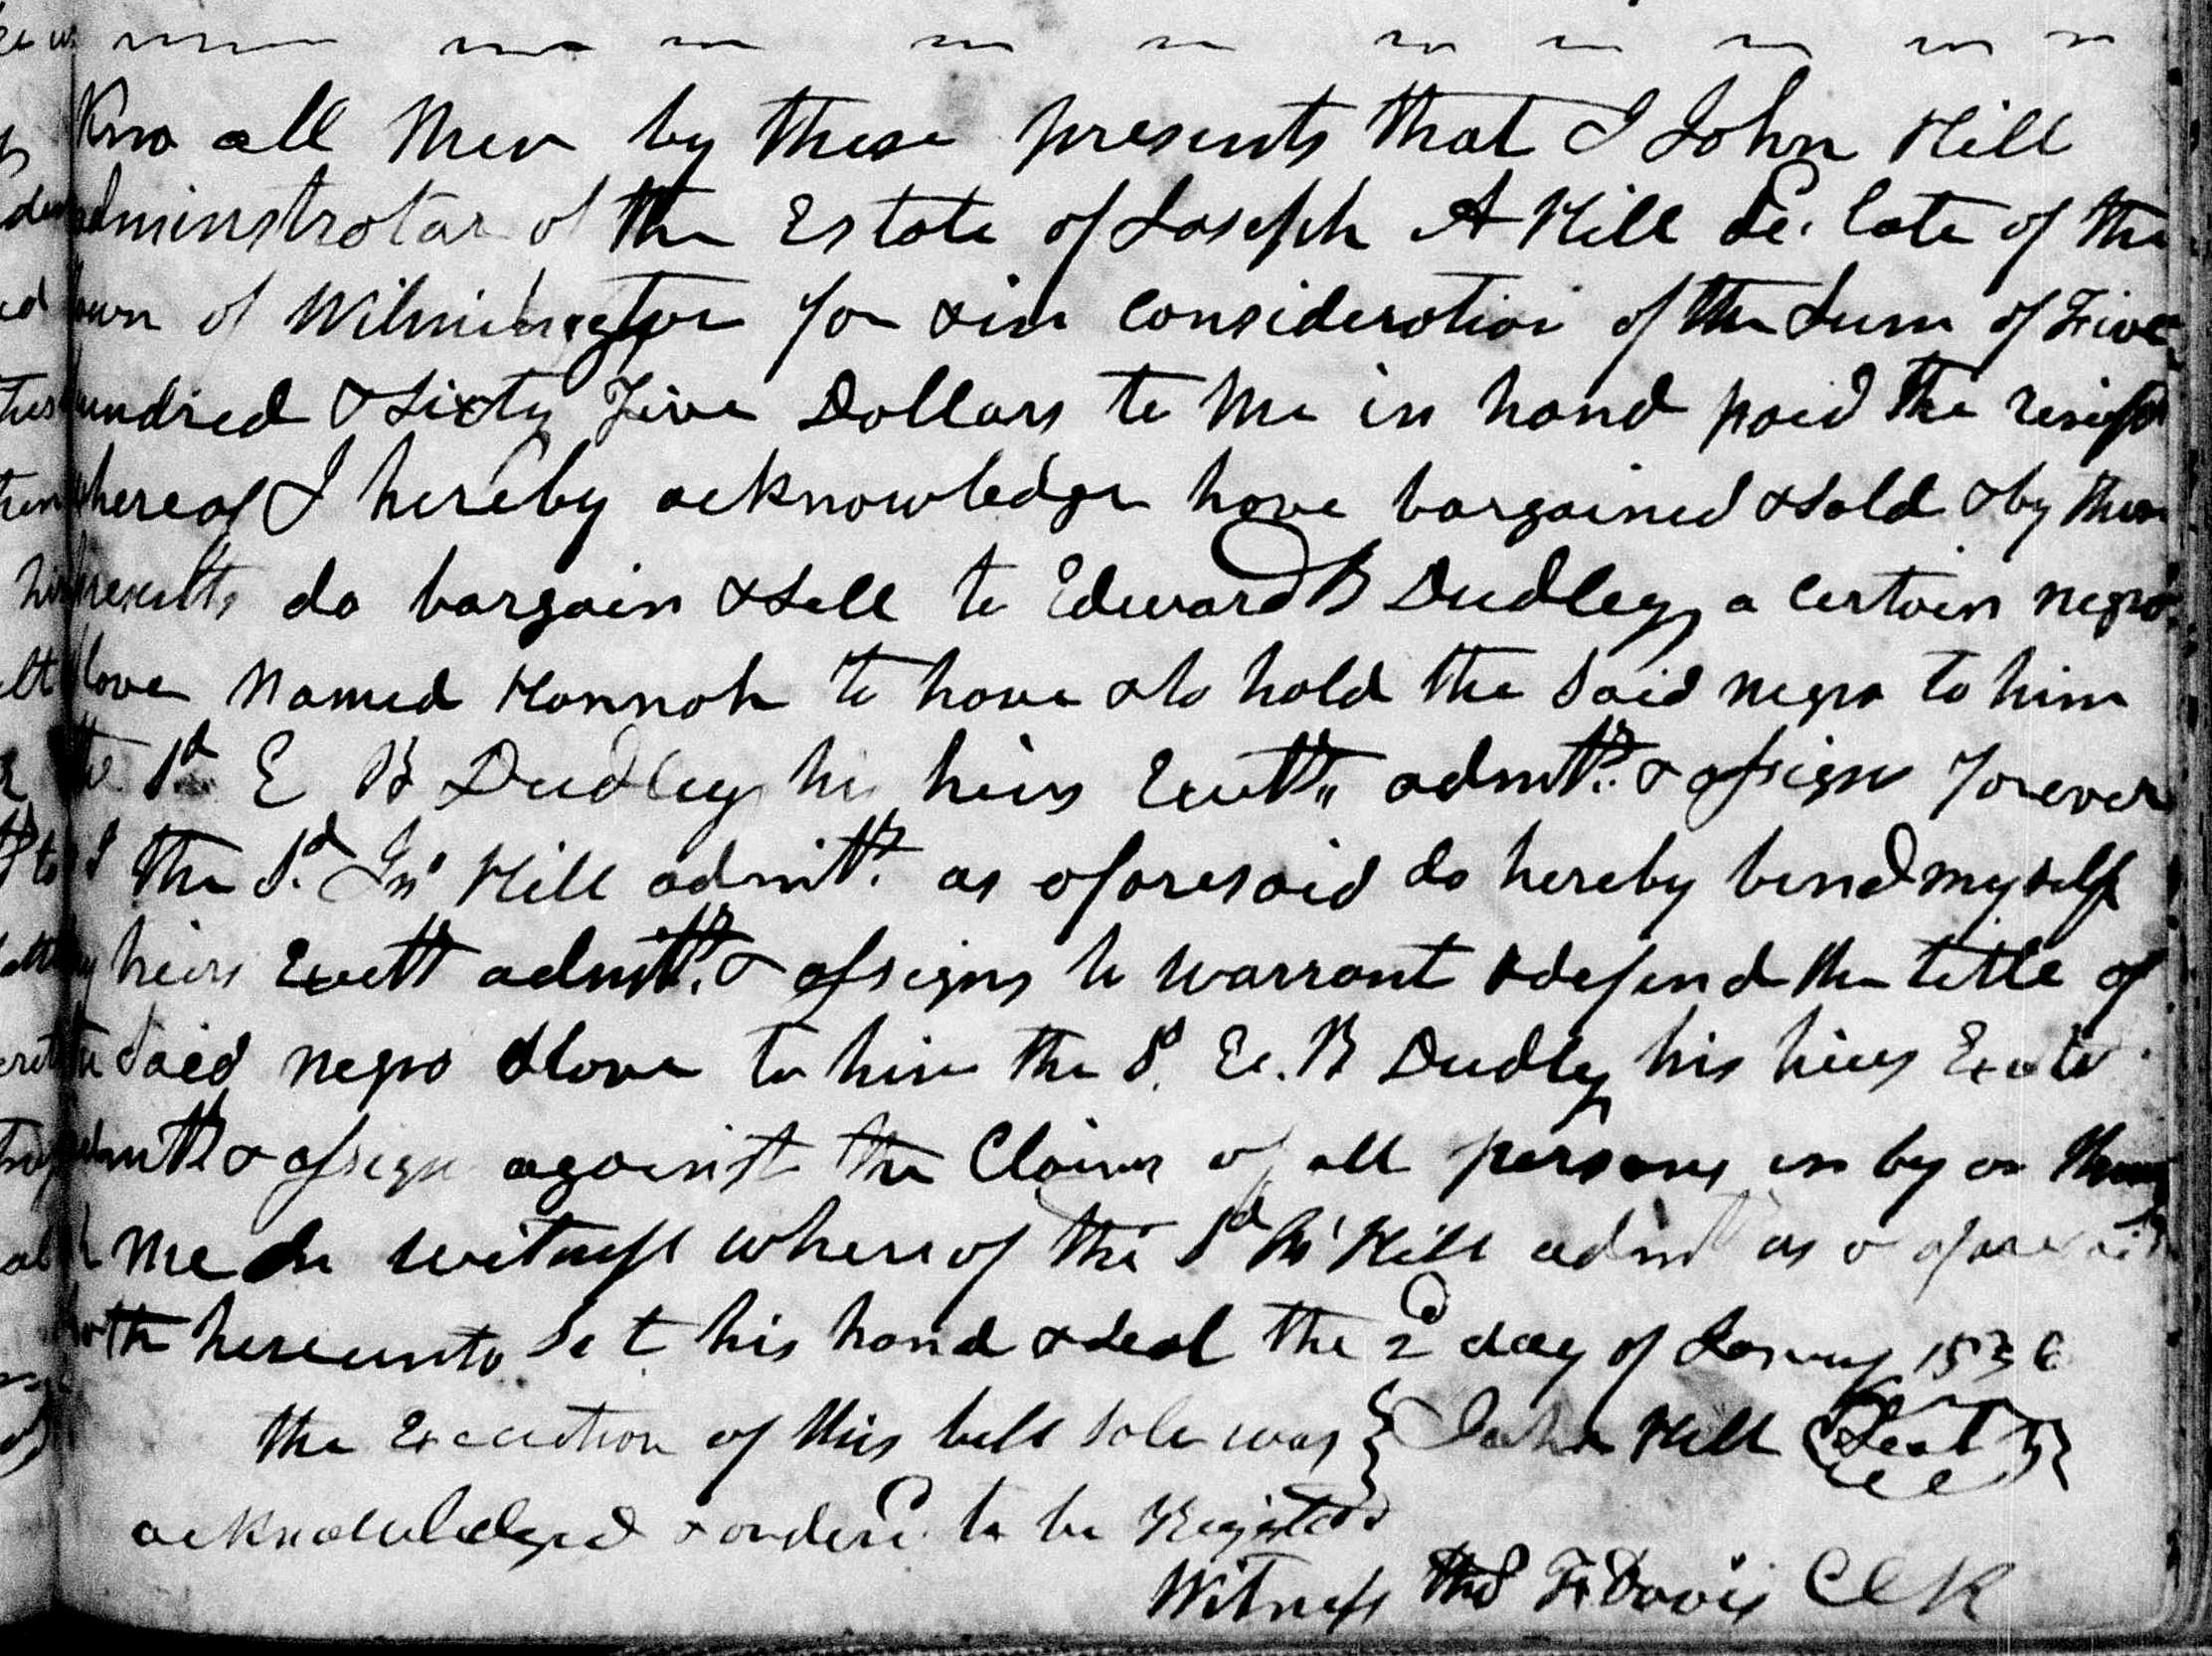 Kno all Men by these presents that I John Hill
adminstrator of the Estate of Joseph A Hill De. late of the
town of Wilmington for & in consideration of the Sum of Five
hundred & Sixty Five Dollars to me in hand paid the reciept
whereof I hereby acknowledge have bargained & sold & by these
presents do bargain & sell to Edward B Dudley a certain negro
slave Named Hannah to have & to hold the said negro to him
the sd E B Dudley his heirs admtr. & assigns forever
I the sd. Jno Hill admtr. as aforesaid do hereby bind myself
my heirs admtr. & assigns to warrant & defend the title of
the said negro slave to him the sd. E. B Dudley his heirs
& assigns against the Claim of all persons in by or through
me In witness whereof the sd Jno Hill admr as aforesaid
hath hereunto Set his hand & seal the 2d day of January 1836
the Execution of this bill sale was } John Hill {Seal}
acknowledged & orderd to be Registerd
Witness Thos F. Davis Clk